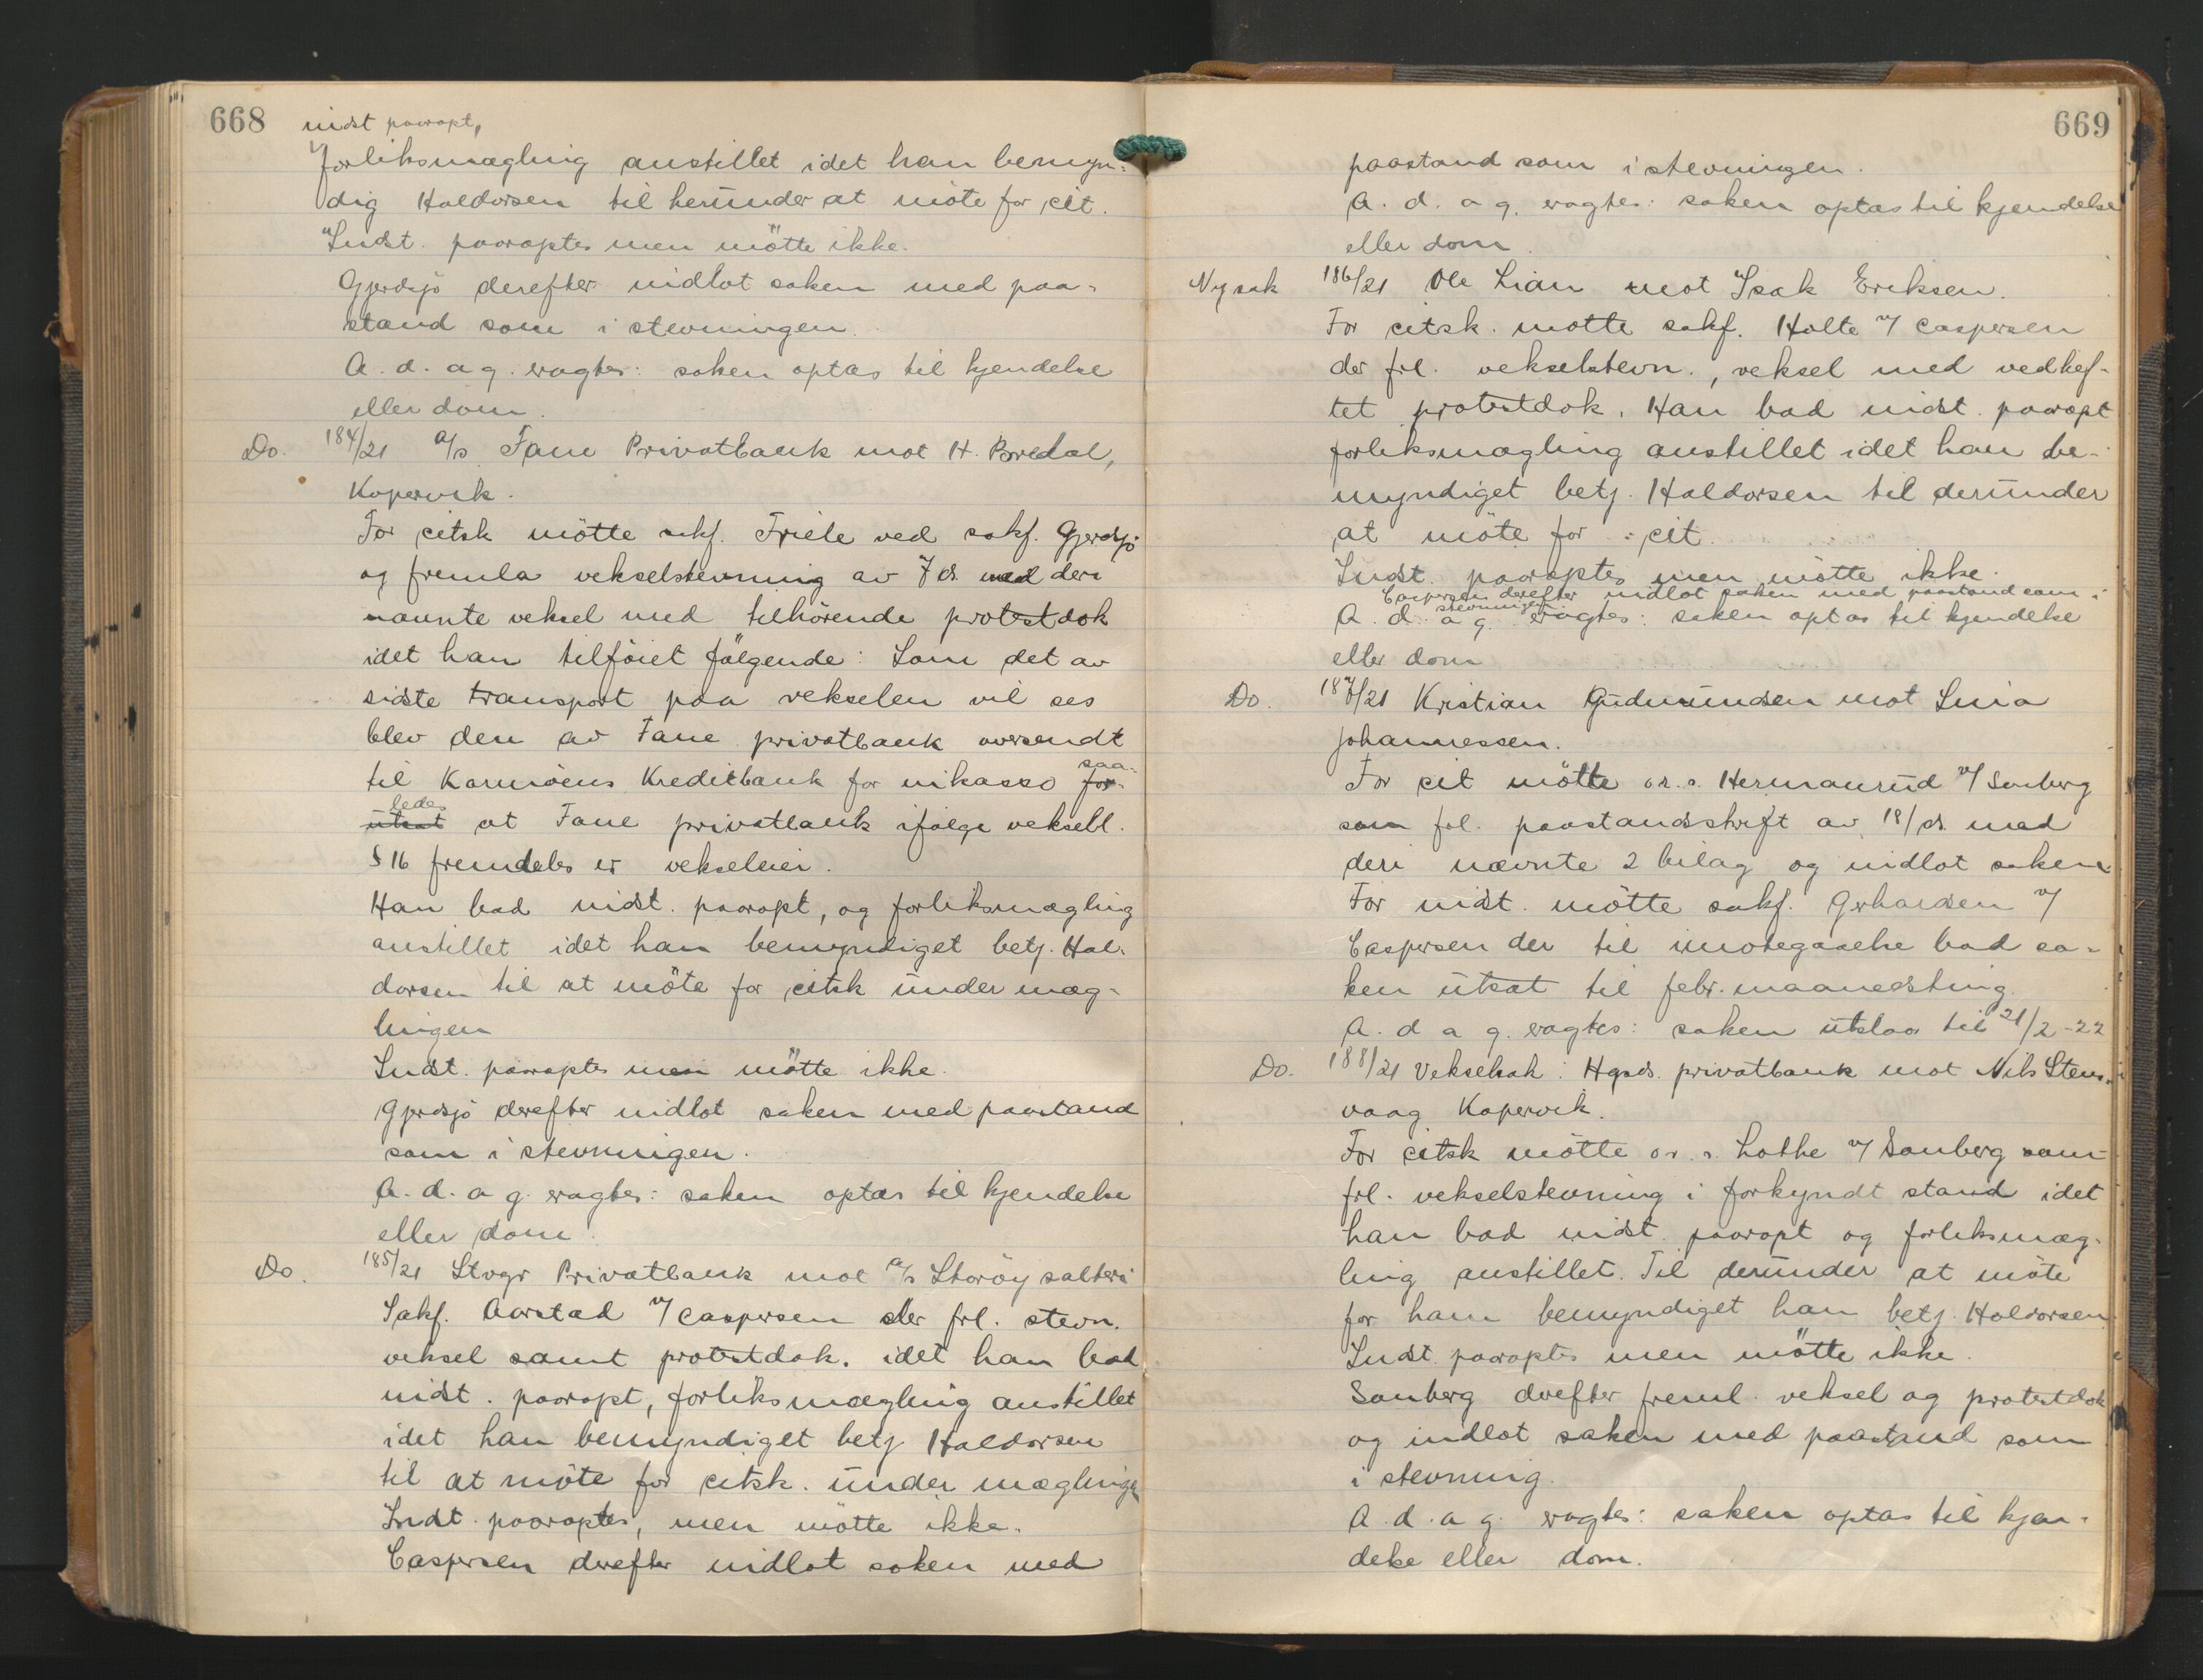 668
indst paaropt,
forliksmægling anstillet idet han bemyn-
dig Haldorsen til herunder at möte for cit.
Indst. paaroptes men mötte ikke.
Gjerdsjö derefter indlot saken med paa-
stand som i stevningen.
A. d. a g. eragtes: saken optas til kjendelse
eller dom.
Do. 184/21 A/s Fane Privatbank mot H. Bredal,
Kopervik.
For citsk mötte sakf. Friele ved sakf. Gjerdsjö
og fremla vekselstevning av 7 ds. med deri
nævnte veksel med tilhörende protestdok
idet han tilföiet fölgende: Som det av
sidste transport paa vekselen vil ses
blev den av Fane privatbank oversendt
til Karmöens Kreditbank for inkasso for- saa-
utsat ledes at Fane privatbank ifölge veksell.
§ 16 fremdeles er vekseleier.
Han bad indst. paaropt, og forliksmægling
anstillet idet han bemyndiget betj. Hal-
dorsen til at möte for citsk under mæg-
lingen
Indst. paaroptes men mötte ikke.
Gjerdsjö derefter indlot saken med paastand
som i stevningen.
A. d. a g. eragtes: saken optas til kjendelse
eller dom.
Do. 185/21 Stvgr Privatbank mot A/s Storöy salteri
Sakf. Aarstad v/ Caspersen der frl. stevn.
veksel samt protestdok. idet han bad
indst. paaropt, forliksmægling anstillet
idet han bemyndiget betj. Haldorsen
til at möte for citsk. under mæglingen
Indt. paaroptes, men mötte ikke.
Caspersen derefter indlot saken med
669
paastand som i stevningen.
A. d. a g. eragtes: saken optas til kjendelse
eller dom.
Ny sak 186/21 Ole Lian mot Isak Eriksen.
For citsk. mötte sakf. Holte v/ Caspersen
der frl. vekselstevn., veksel med vedhef-
tet protestdok. Han bad indst. paaropt
forliksmægling anstillet idet han be-
myndiget betj. Haldorsen til derunder
at möte for cit.
Indst. paaroptes men mötte ikke.
Caspersen derefter indlot saken med paastand som i
stevningen
A. d. a g. eragtes: saken optas til kjendelse
eller dom
Do. 187/21 Kristian Gudmundsen mot Sina
Johannessen.
For cit mötte o.r.s. Hermansrud v/ Sonberg
som frl. paastandsskrift av 18/ds. med
deri nævnte 2 bilag og indlot saken
For indst. mötte sakf. Gerhardsen v/
Caspersen der til imotegaaelse bad sa-
ken utsat til febr. maanedsting.
A. d a g. eragtes: saken utslaa til 21/2-22
Do. 188/21 Vekselsak: Hgsds. privatbank mot Nils Stens-
vaag Kopervik.
For citsk mötte o.r.s. Lothe v/ Sonberg som
frl. vekselstevning i forkyndt stand idet
han bad indst. paaropt og forliksmæg-
ling anstillet. Til derunder at möte
for ham bemyndiget han betj. Haldorsen
Indst. paaroptes men mötte ikke.
Sonberg derefter freml. veksel og protestdok
og indlot saken med paastand som
i stevning.
A. d. a g. eragtes: saken optas til kjen-
delse eller dom.